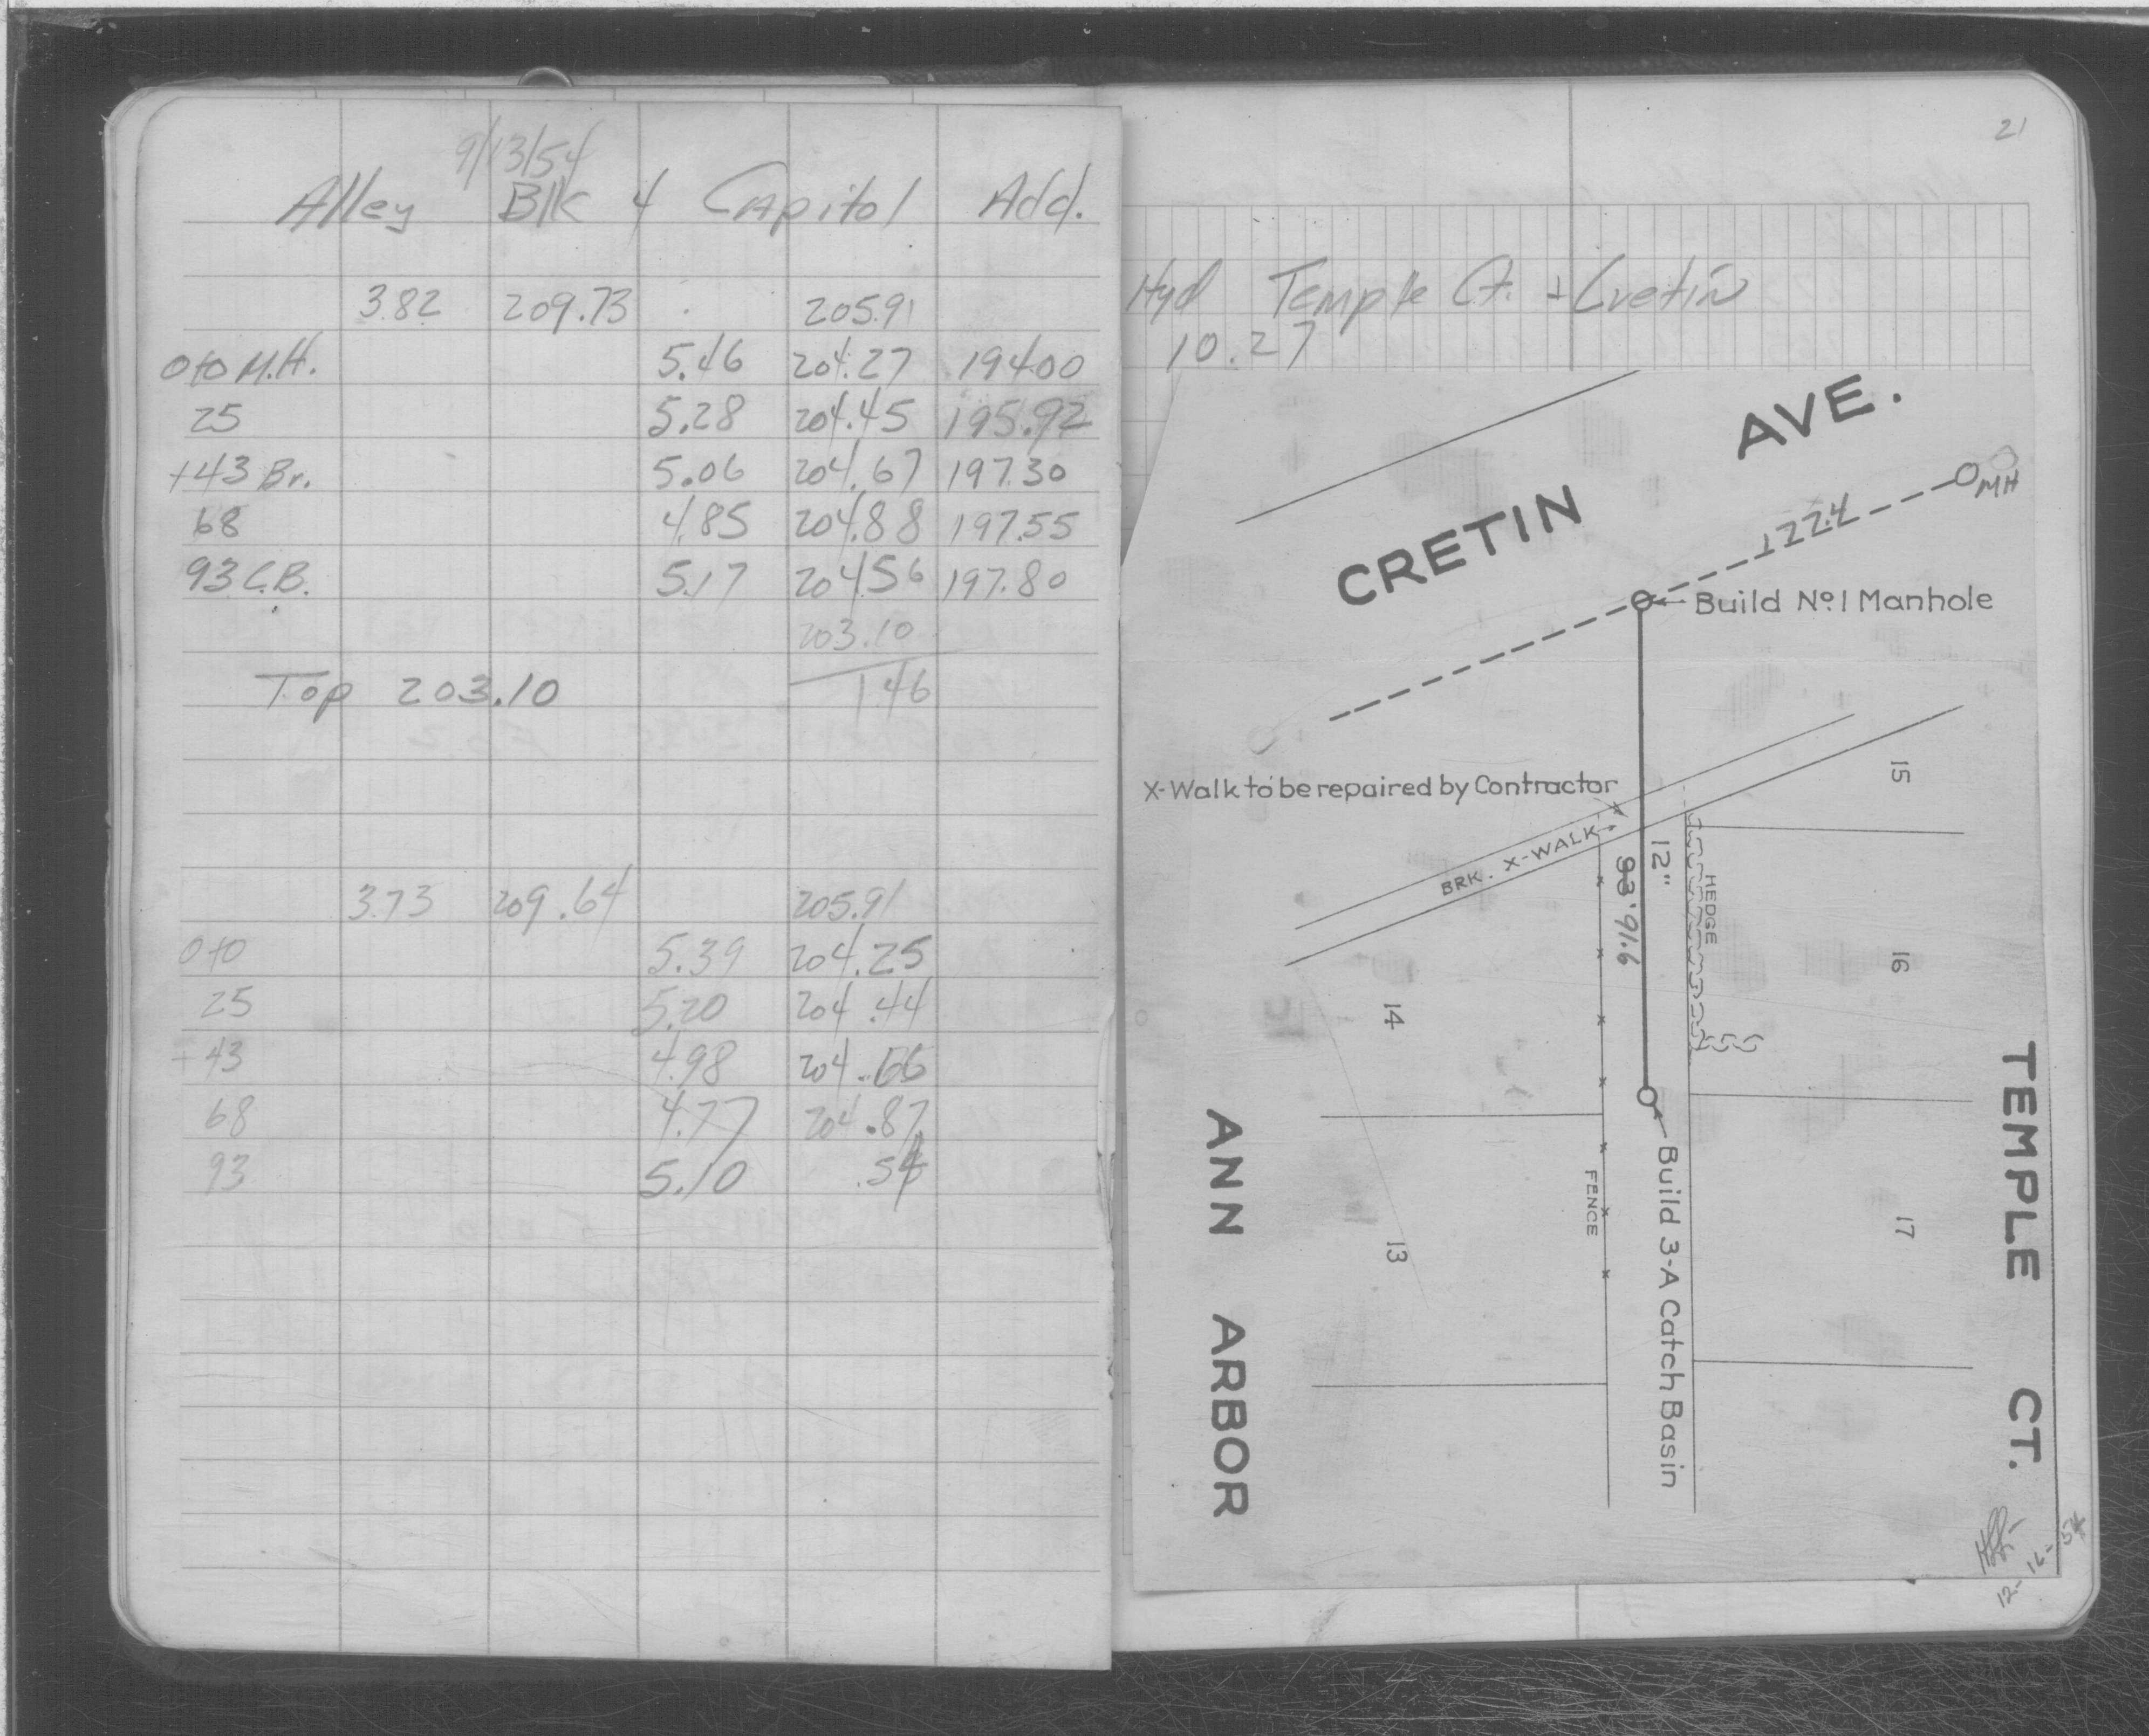 9/13/54
Alley Blk 4 Capitol Add.
3.82 209.73 205.91
0+0 M.H. 5.46 204.27 194.00
25 5.28 204.45 195.92
+43 Br. 5.06 204.67 197.30
68 4.85 204.88 197.55
93 C.B. 5.17 204.56 197.80
203.10
Top 203.10 1.46
3.73 209.64 205.91
0+0 5.39 204.25
25 5.20 204.44
+43 4.98 204.66
68 4.77 204.87
93 5.10 .54
21
Hyd Temple Ct. + Cretin
10.27
CRETIN AVE.
MH
122.4
Build No. 1 Manhole
X-Walk to be repaired by Contractor
BRK. X-WALK
12"
93' 91.6
HEDGE
15
16
17
14
13
FENCE
Build 3-A Catch Basin
ANN ARBOR
TEMPLE CT.
12-16-54